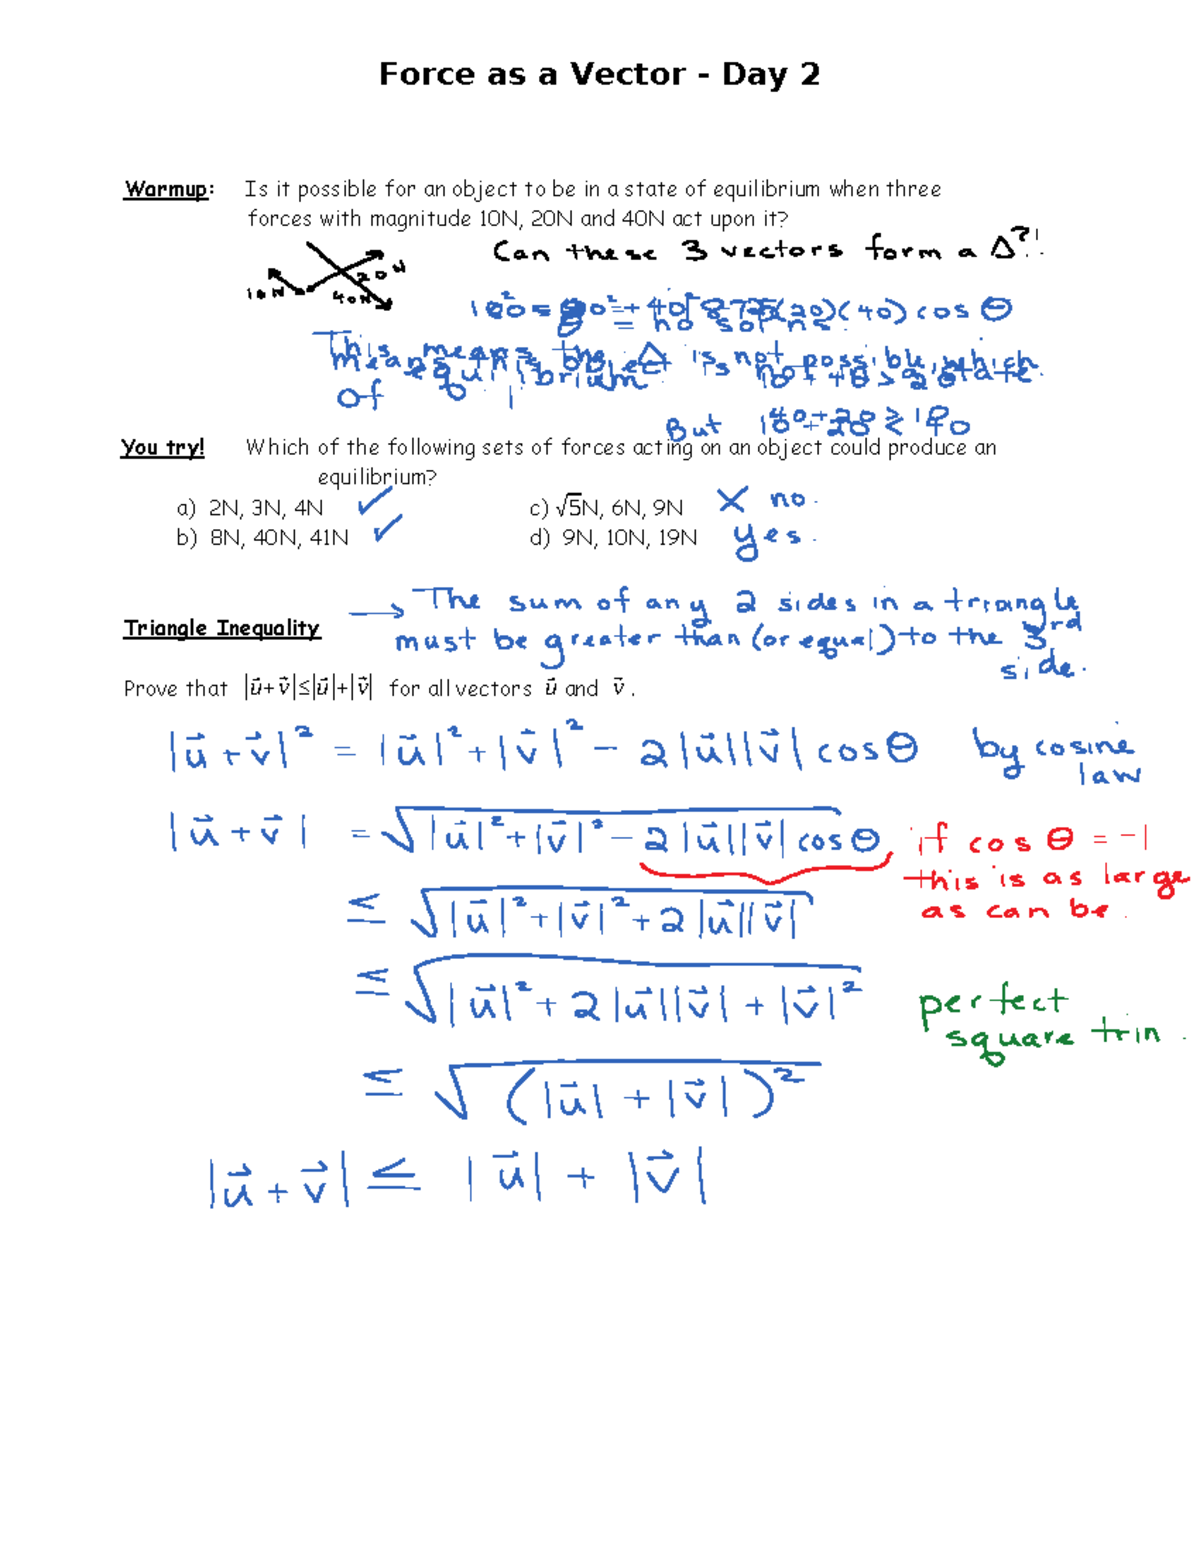 Force as a Vector - Day 2
Warmup: Is it possible for an object to be in a state of equilibrium when three
forces with magnitude 10N, 20N and 40N act upon it?
Can these 3 vectors form a Δ?!
10N
20N
40N
cos θ
This means the Δ is not possible, which
of
But
You try! Which of the following sets of forces acting on an object could produce an
equilibrium?
a) 2N, 3N, 4N ✓ c) √5N, 6N, 9N X no.
b) 8N, 40N, 41N ✓ d) 9N, 10N, 19N yes.
Triangle Inequality → The sum of any 2 sides in a triangle
must be greater than (or equal) to the 3rd
side.
Prove that |u⃗+v⃗|≤|u⃗|+|v⃗| for all vectors u⃗ and v⃗.
|u⃗ + v⃗|² = |u⃗|² + |v⃗|² − 2|u⃗||v⃗| cos θ by cosine
law
|u⃗ + v⃗| = √|u⃗|² + |v⃗|² − 2|u⃗||v⃗| cos θ if cos θ = −1
this is as large
as can be.
≤ √|u⃗|² + |v⃗|² + 2|u⃗||v⃗|
≤ √|u⃗|² + 2|u⃗||v⃗| + |v⃗|² perfect
square trin.
≤ √(|u⃗| + |v⃗|)²
|u⃗ + v⃗| ≤ |u⃗| + |v⃗|